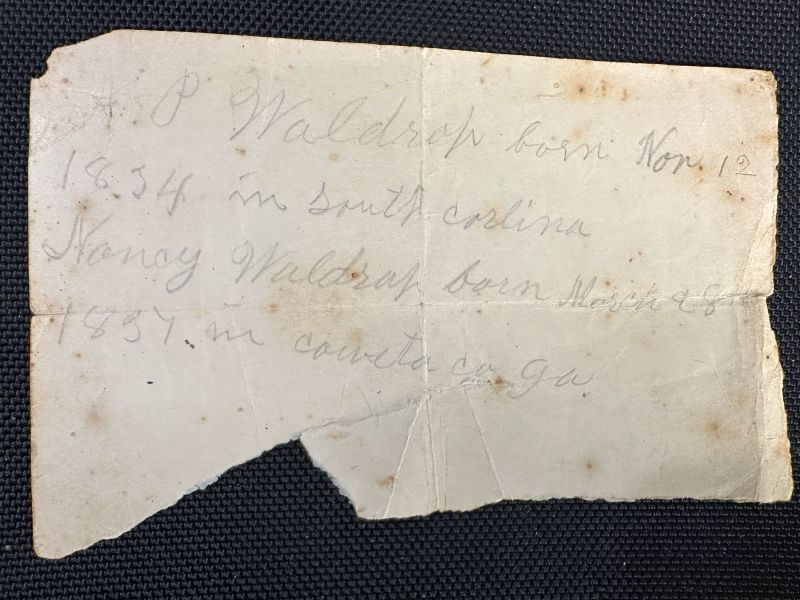 A P Waldrop born Nov. 12
1834 in south corlina
Nancy Waldrop born March 28
1837 in coweta co ga.